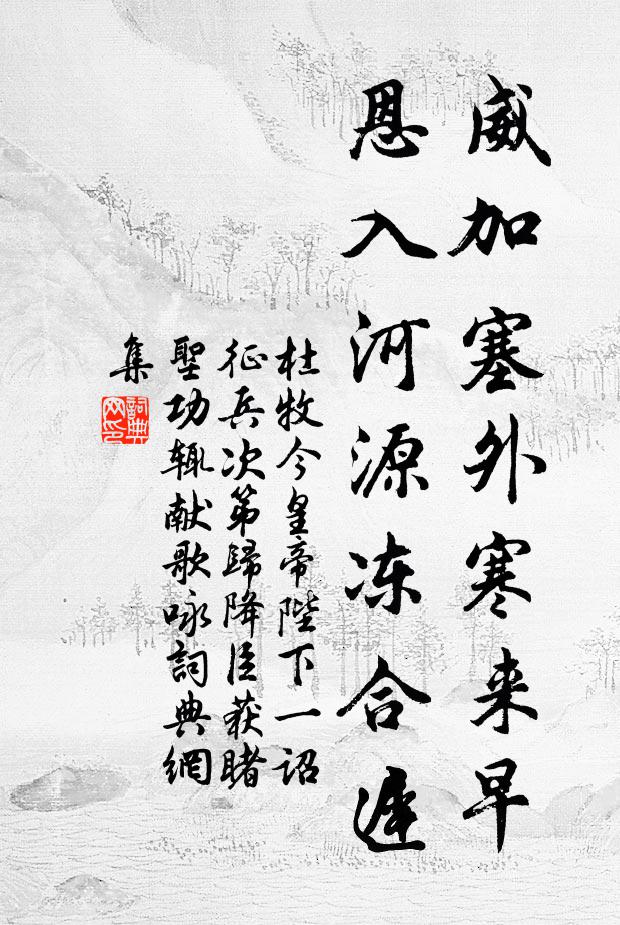 威加塞外寒来早
恩入河源冻合遲
杜牧今皇帝陛下一詔
征兵次第歸降臣获睹
聖功辄献歌咏詞典網
集
詞典
网印